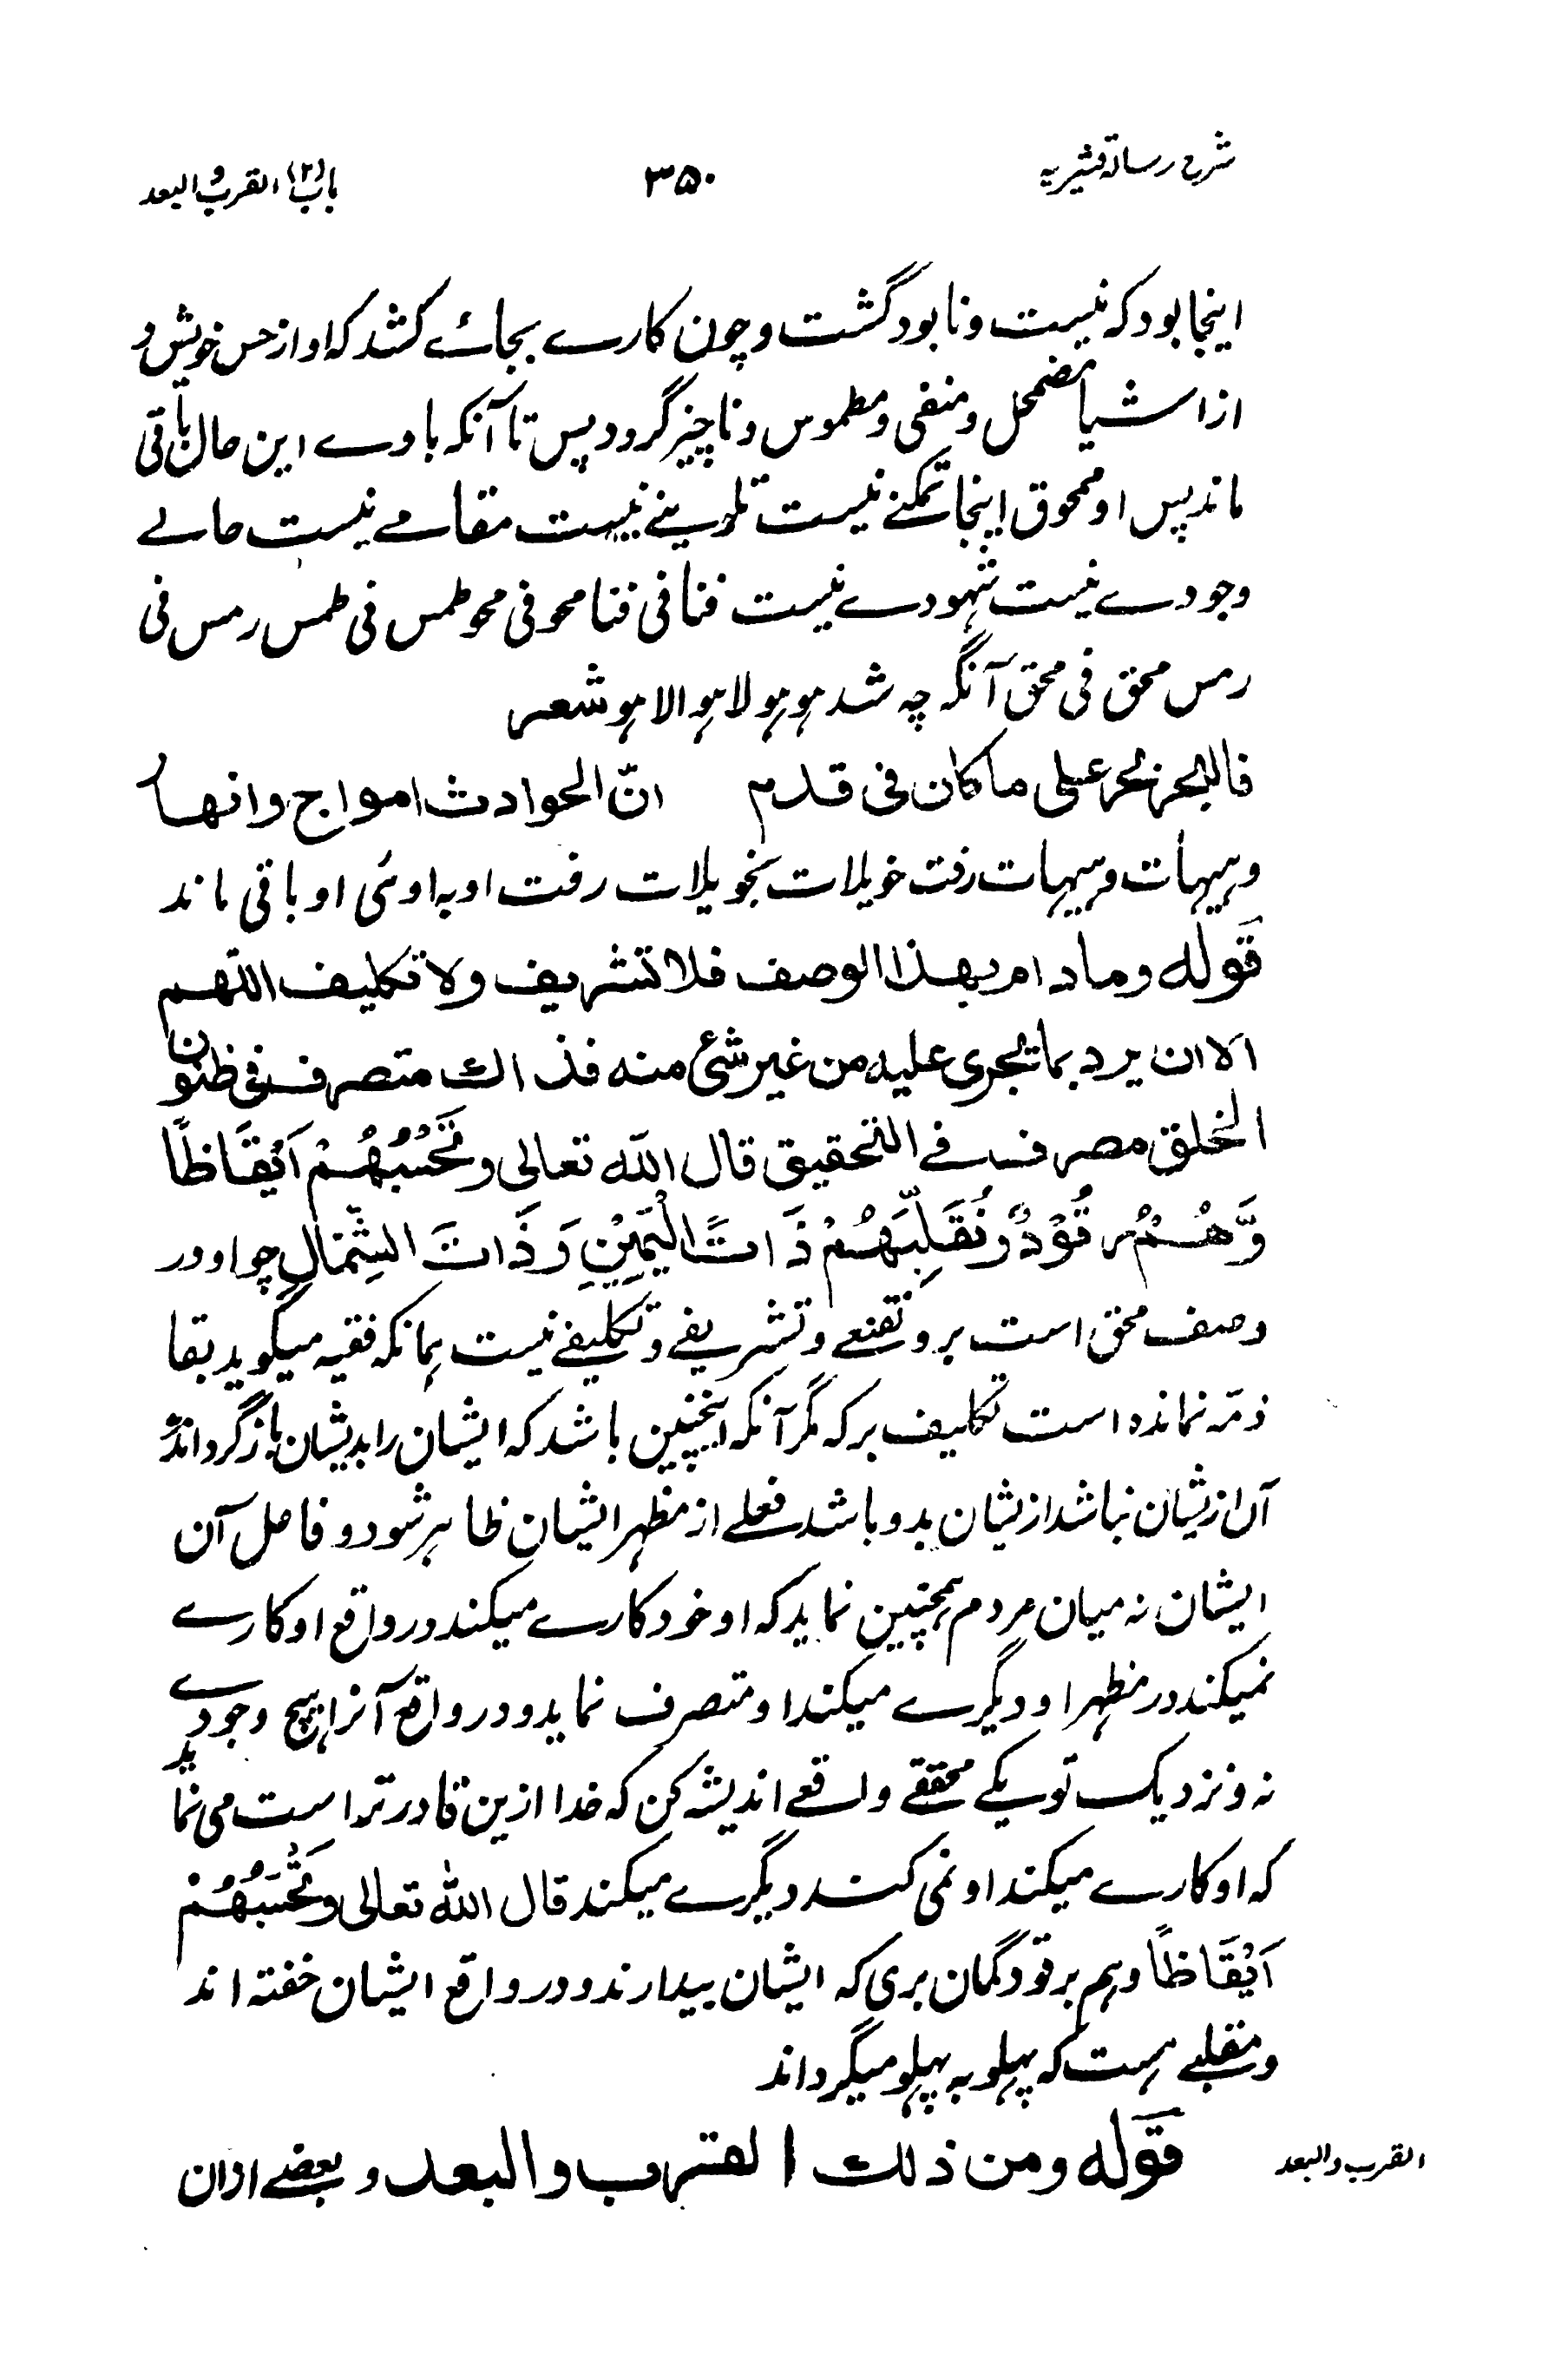 شرح رسالۀ قشیریہ
۳۵۰
باب (۲) القرب و البعد
اینجا بود کہ نیست و نابود گشت و چون کارے بجائے کشد کہ او از حس خویش و
از اشیا مضمحل و منفی و مطموس و ناچیز گردد پس تا آنکہ با وے این حال باقی
ماند پس او ممحوق اینجا تمکنے نیست تلوینے نیست مقامے نیست حالے
وجودے نیست شہودے نیست فنا فی فنا محو فی محو طمس فی طمس رمس فی
رمس محق فی محق آنگہ چہ شد ہو ہو لا ہو الا ہو شعر
فالبحر بحر علی ما کان فی قدم انّ الحوادث امواج وانهار
وہیہات وہیہات رفت خویلات بخویلات رفت او بہ اوئی او باقی ماند
قوله وما دام بهذا الوصف فلا تشریف ولا تکلیف اللّهم
الا ان یرد بما تجری علیه من غیر شئ منه فذاك متصرف فی ظنون
الخلق مصرف فے التحقیق قال اللّه تعالی وَتَحْسَبُهُمْ اَیْقَاظًا
وَّهُمْ رُقُوْدٌ وَنُقَلِّبُهُمْ ذَاتَ الْیَمِیْنِ وَذَاتَ الشِّمَالِ چو او در
وصف محق است برو تقنعے و تشریفے و تکلیفے نیست ہمانکہ فقیہ میگوید بقا
ذمّہ نماندہ است تکلیف بر کہ مگر آنکہ اینچنین باشد کہ ایشان را بدیشان باز گرداند و
آن ازیشان نباشد ازیشان بدو باشد فعلے از مظہر ایشان ظاہر شود و فاعل آن
ایشان نہ میان مردم ہمچنین نماید کہ او خود کارے میکند در واقع او کارے
نمیکند در مظہر او دیگرے میکند او متصرف نماید و در واقع آنرا ہیچ وجودے
نہ و نزدیک تو یکے محققے واقعے اندیشہ کن کہ خدا ازین قادر تر است می نماید
کہ او کارے میکند او نمی کند دیگرے میکند قال اللّٰہ تعالی وَتَحْسَبُهُمْ
اَیْقَاظًا وہم برقود گمان بری کہ ایشان بیدارند و در واقع ایشان خفتہ اند
و مقلبے ہست کہ پہلو بہ پہلو میگرداند
القرب والبعد
قوله ومن ذلك القرب والبعد و بعضے ازان